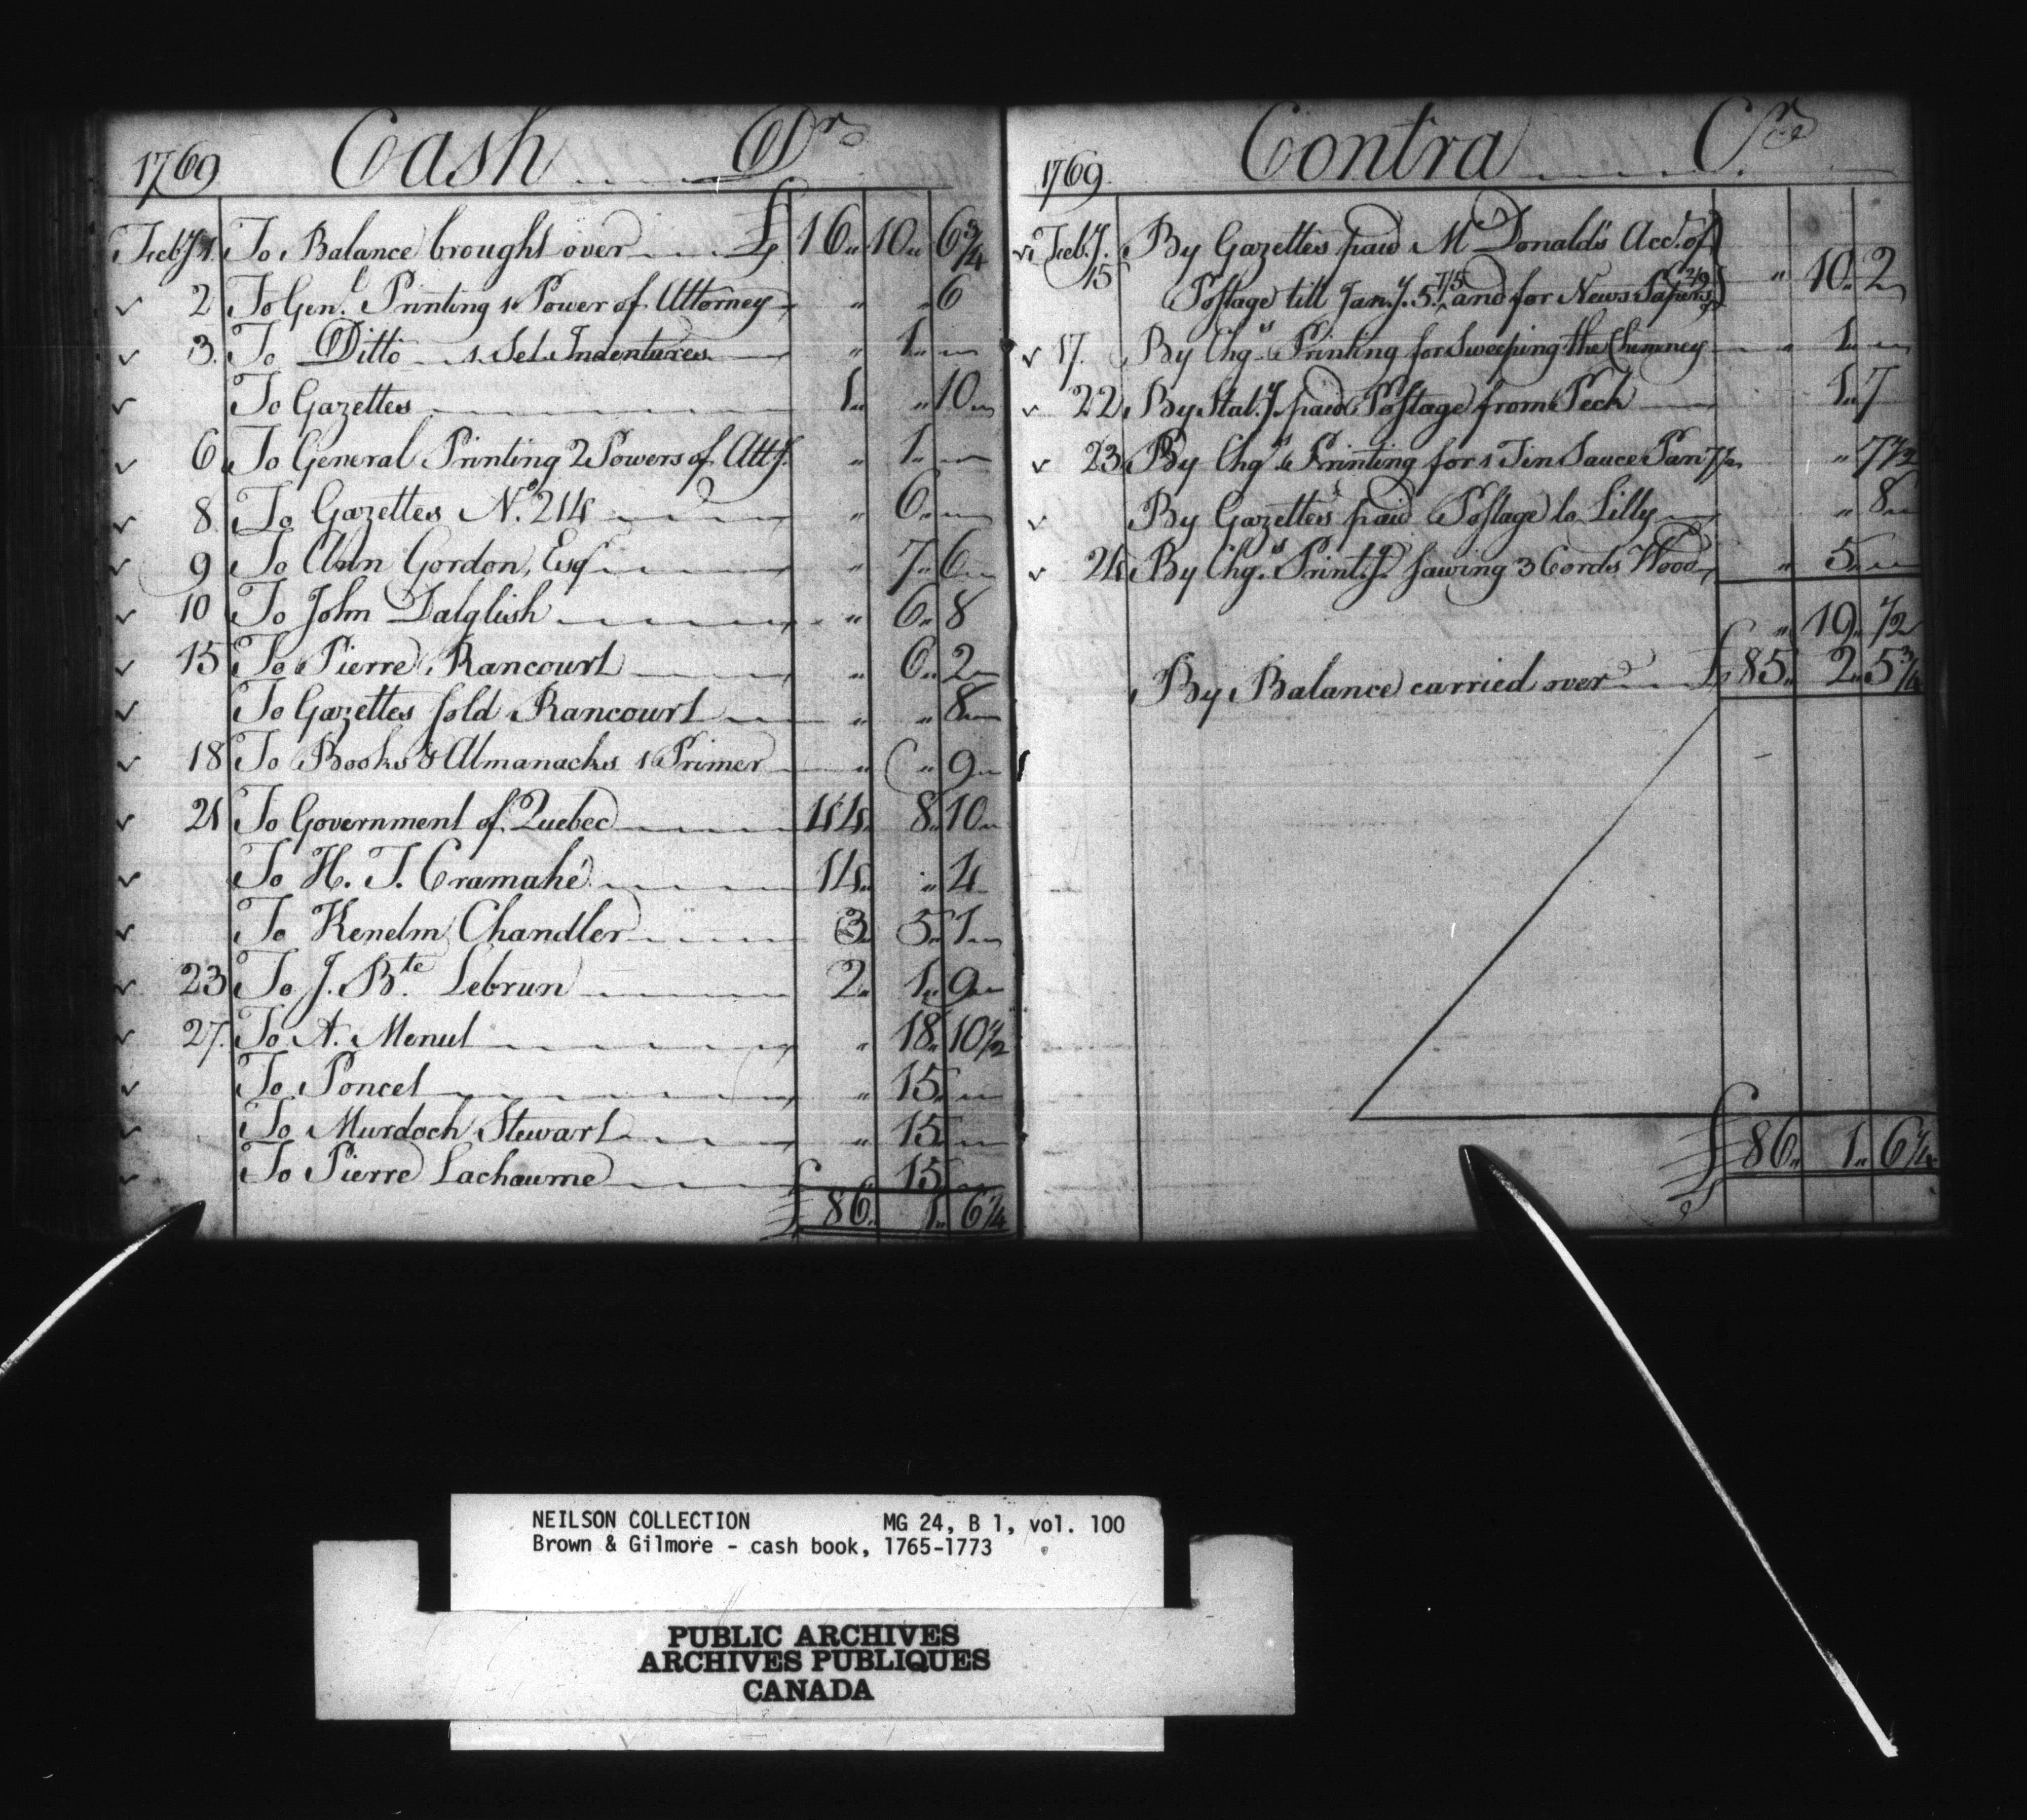 1769 Cash Dr
Feby 1. To Balance brought over £ 16 " 10 " 6 3/4
2 To Genl. Printing 1 Power of Attorney " " 6
3. To Ditto 1 Set Indentures " 1 "
To Gazettes 1 " " 10
6 To General Printing 2 Powers of Atty. " 1 "
8 To Gazettes No. 214 " 6 "
9 To Ann Gordon, Esqr " 7 " 6
10 To John Dalglish " 6 " 8
15 To Pierre Rancourt " 6 " 2
To Gazettes sold Rancourt " " 8
18 To Books & Almanacks 1 Primer " " 9
21 To Government of Quebec 44 " 8 " 10
To H. T. Cramahé 14 " " 4
To Kenelm Chandler 3 " 5 " 1
23 To J. Bte. Lebrun 2 " 1 " 9
27. To A. Menut " 18 " 10 1/2
To Poncet " 15 "
To Murdoch Stewart " 15 "
To Pierre Lachaume " 15 "
£ 86 " 1 " 6 1/4
1769 Contra Cr
Feby. 15 By Gazettes paid McDonald's Acct. of
Postage till Jany. 5. 7/5 and for News Papers 2/9 " 10 " 2
17. By Chgs. Printing for Sweeping the Chimney " 1 "
22 By Staty. paid Postage from Peck 1 " 7
23 By Chgs. Printing for 1 Tin Sauce Pan 7 1/2 " 7 1/2
By Gazettes paid Postage to Lilly " 8
24 By Chgs. Printg. sawing 3 Cords Wood " 5 "
" 19 " 1/2
By Balance carried over £ 85 " 2 " 5 3/4
£ 86 " 1 " 6 1/4
NEILSON COLLECTION MG 24, B 1, vol. 100
Brown & Gilmore - cash book, 1765-1773
PUBLIC ARCHIVES
ARCHIVES PUBLIQUES
CANADA